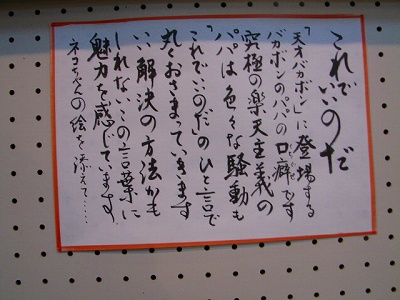 これでいいのだ
「天才バカボン」に登場する
バカボンのパパの口癖です
究極の楽天主義の
パパは色々な騒動も
「これでいいのだ」のひと言で
丸くおさまっていきます
いい解決の方法かも
しれないこの言葉に
魅力を感じています。
ネコちゃんの絵を添えて……